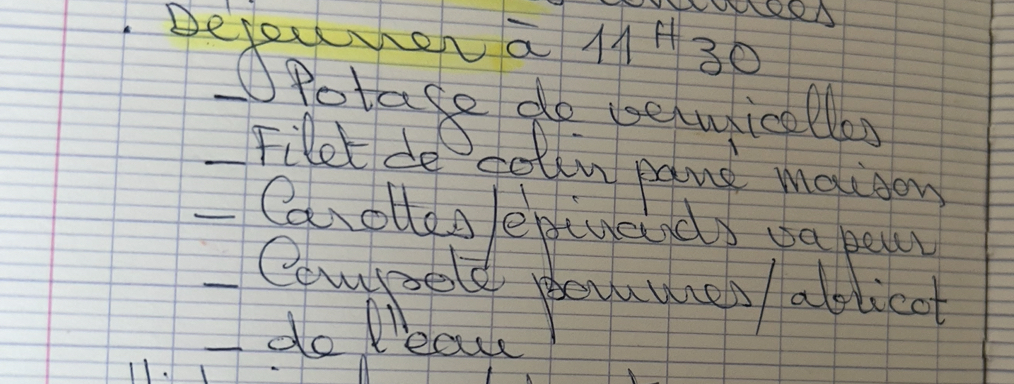 . Déjeuner à 11H30
- Potage de vermicelles
- Filet de colin pané maison
- Carottes/épinards vapeur
- Compote pommes/abricot
- de l'eau